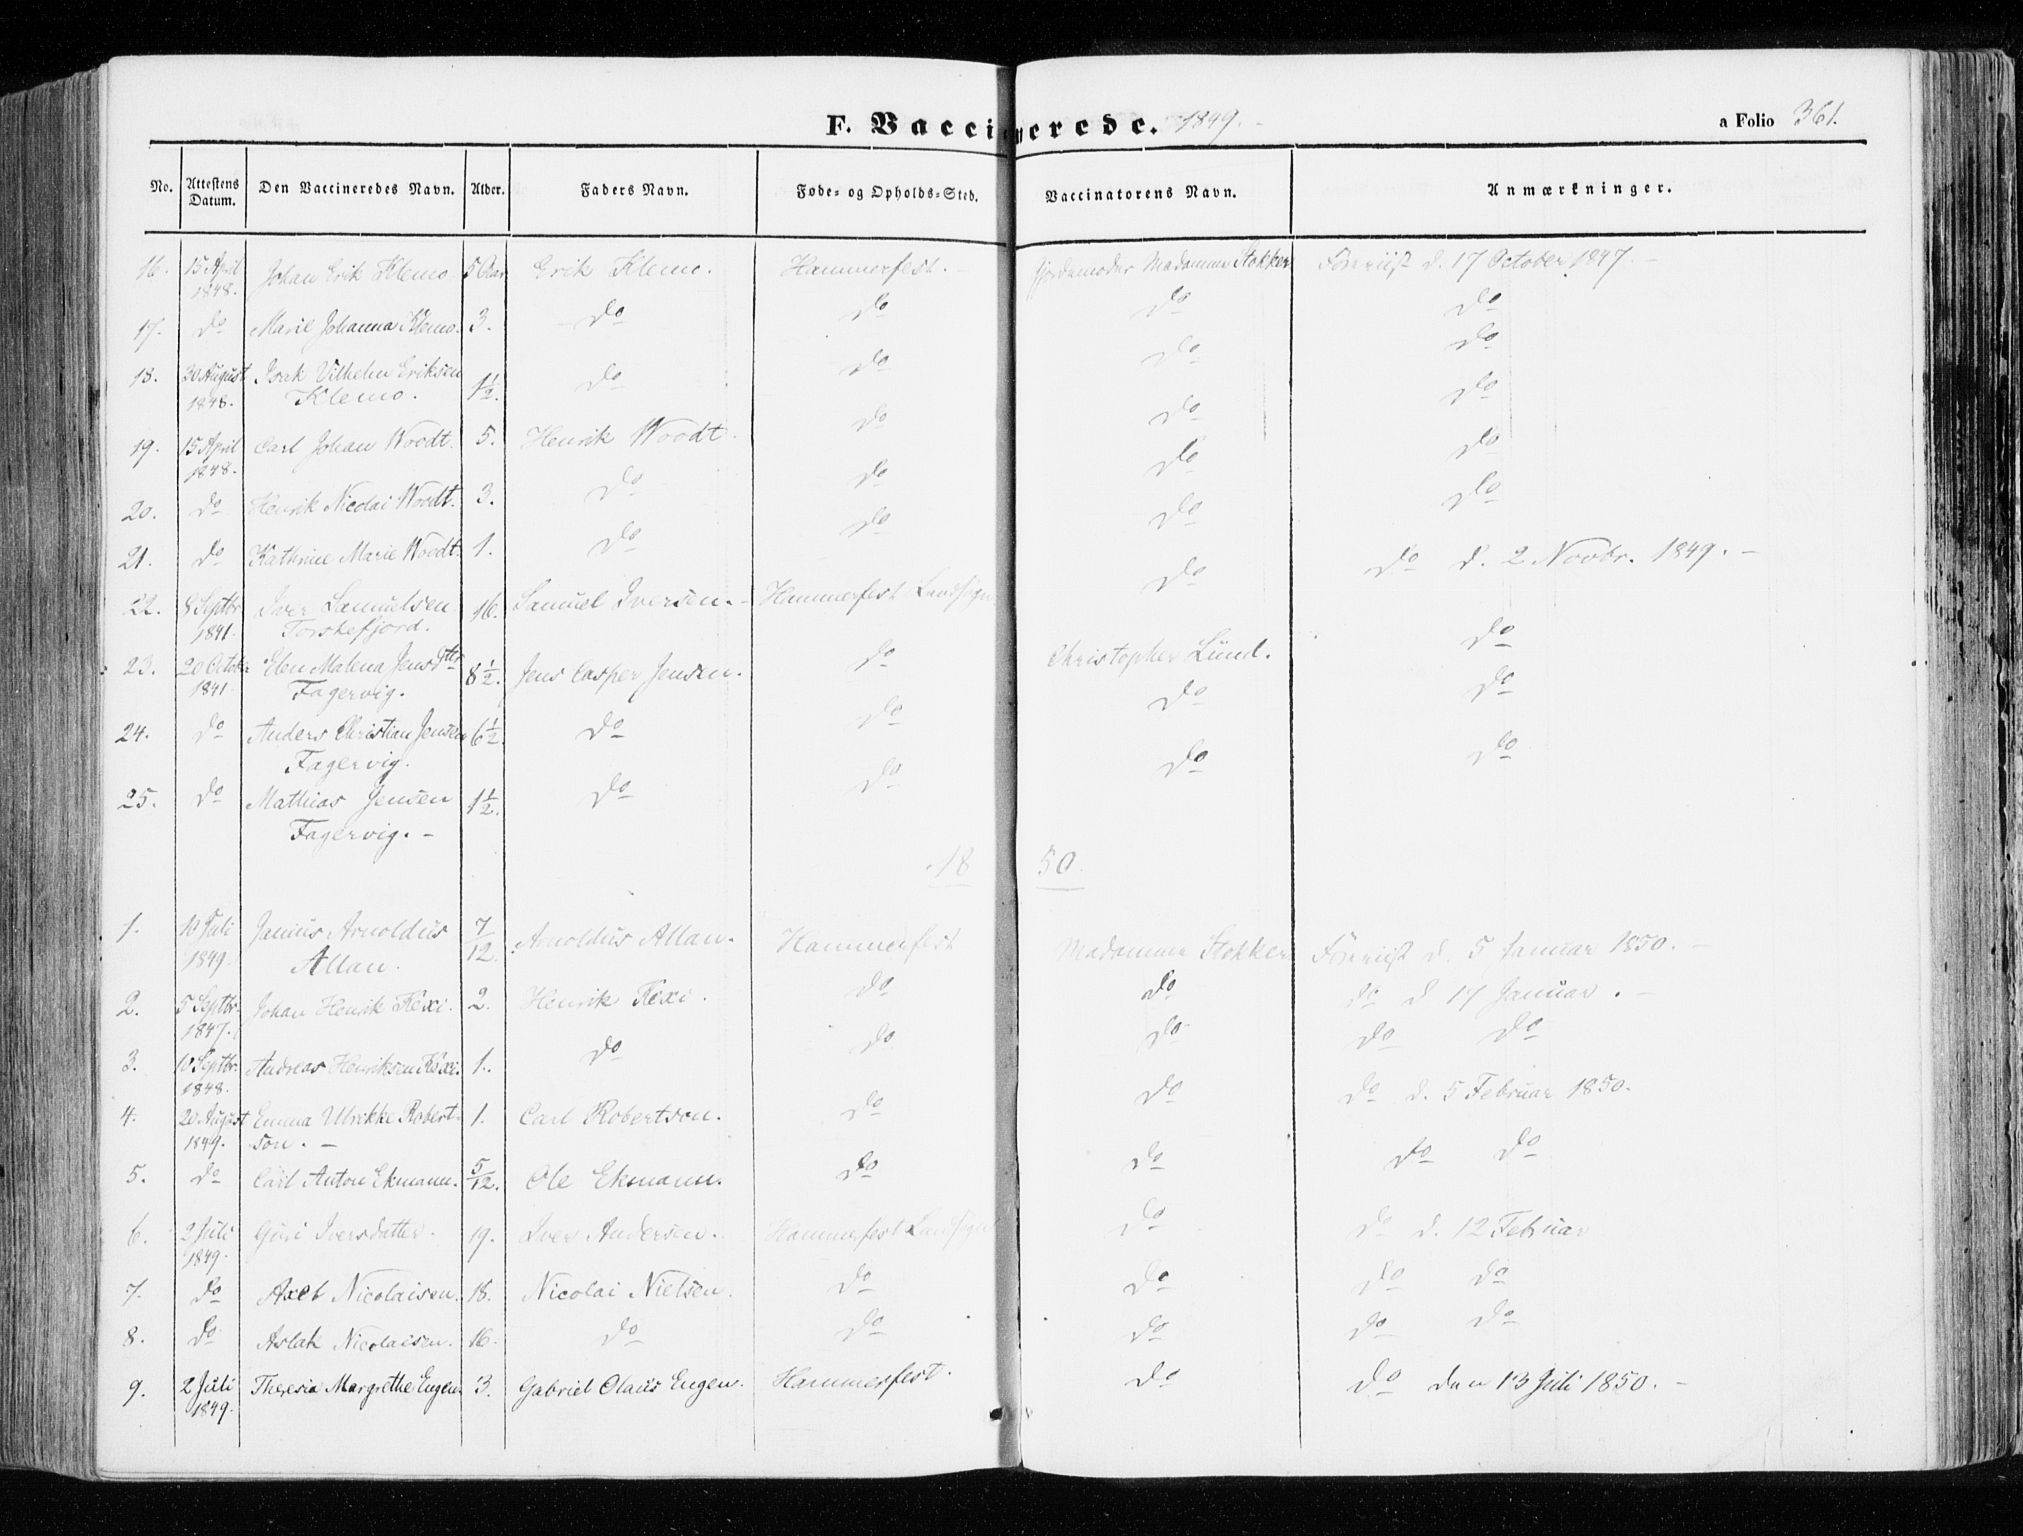 F. Vaccinerede. 1849. a Folio 361.
No. Attestens Datum. Den Vaccineredes Navn. Alder. Faders Navn. Føde- og Opholds-Sted. Vaccinatorens Navn. Anmærkninger.
16. 15 April 1848. Johan Erik Klemo 5 Aar Erik Klemo. Hammerfest. Jordemoder Madamme Stokker d. 17 October 1847.
17. do Marie Johanna Klemo. 3. do do do do
18. 30 August 1848. Isak Vilhelm Eriksen Klemo. 1 1/2. do do do do
19. 15 April 1848. Carl Johan Woodt. 5. Henrik Woodt. do do do
20. do Henrik Nicolai Woodt. 3. do do do do
21. do Kathrine Marie Woodt. 1. do do do do
22. 8 Septbr 1841. Iver Samuelsen Torskefjord. 16. Samuel Iversen. Hammerfest Landsogn do do d. 2 Novbr. 1849.
23. 20 October 1841. Elen Malena Jensdtter Fagervig. 8 1/2. Jens Casper Jensen. do Christopher Lund. do
24. do Anders Christian Jensen Fagervig. 6 1/2. do do do do
25. do Mathias Jensen Fagervig. 1 1/2. do do do do
1850.
1. 10 Juli 1849. Janius Arnoldus Allan. 7/12. Arnoldus Allan. Hammerfest Madamme Stokker d. 5 Januar 1850.
2. 5 Septbr. 1847. Johan Henrik Kexi. 2. Henrik Kexi. do do do d 17 Januar.
3. 10 Septbr. 1848. Andreas Henriksen Kexi. 1. do do do do do
4. 20 August 1849. Emma Ulrikke Robertson. 1. Carl Robertson. do do do d. 5 Februar 1850.
5. do Carl Anton Ekmann. 5/12. Ole Ekmann. do do do do
6. 2 Juli 1849. Guri Iversdatter. 19. Iver Andersen. Hammerfest Landsogn do do d. 12 Februar
7. do Axel Nicolaisen. 18. Nicolai Nielsen. do do do do
8. do Aslak Nicolaisen. 16. do do do do do
9. 2 Juli 1849. Theresia Margrethe Engen 3. Gabriel Olaus Engen. Hammerfest. do do den 13 Juli 1850.